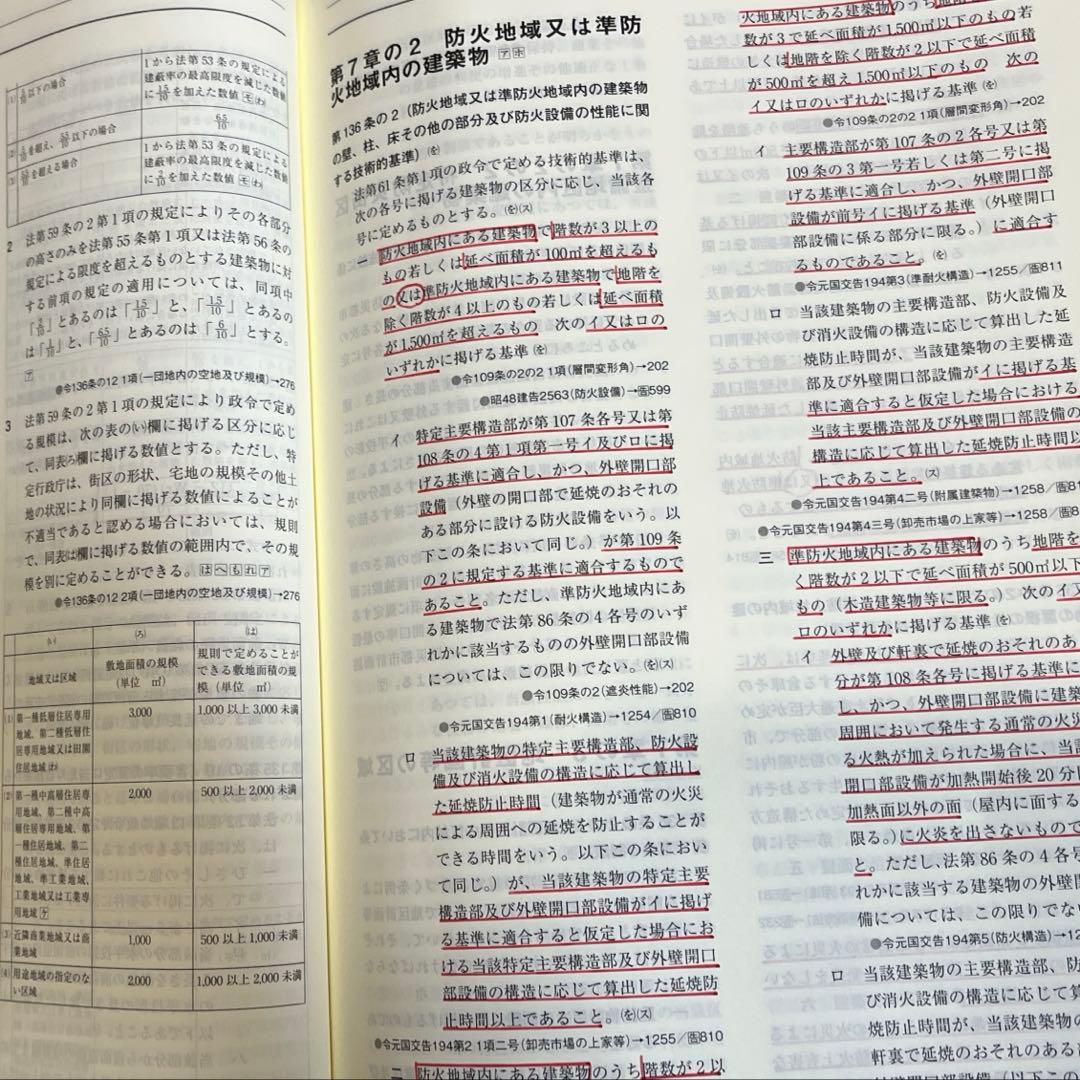 (1) 5/10以下の場合
1から法第53条の規定による
建蔽率の最高限度を減じた数値
に15/10を加えた数値
(2) 5/10を超え、55/10以下の場合
65/10
(3) 55/10を超える場合
1から法第53条の規定による
建蔽率の最高限度を減じた数値
に2/10を加えた数値
2 法第59条の2第1項の規定によりその各部分
の高さのみを法第55条第1項又は法第56条の
規定による限度を超えるものとする建築物に対
する前項の規定の適用については、同項中
とあるのは「15/10」と、「15/10」とあるの
は と、「65/10」とあるのは「6/10」とする。
ア
●令136条の12 1項(一団地内の空地及び規模)→276
3 法第59条の2第1項の規定により政令で定め
る規模は、次の表の(い)欄に掲げる区分に応じ
て、同表(ろ)欄に掲げる数値とする。ただし、特
定行政庁は、街区の形状、宅地の規模その他土
地の状況により同欄に掲げる数値によることが
不適当であると認める場合においては、規則
で、同表(は)欄に掲げる数値の範囲内で、その規
模を別に定めることができる。はへもれア
●令136条の12 2項(一団地内の空地及び規模)→276
(い) (ろ) (は)
地域又は区域
敷地面積の規模
(単位 ㎡)
規則で定めることが
できる敷地面積の規
模(単位 ㎡)
(1) 第一種低層住居専用
地域、第二種低層住
居専用地域又は田園
住居地域
3,000
1,000以上3,000未満
(2) 第一種中高層住居専
用地域、第二種中高
層住居専用地域、第
一種住居地域、第二
種住居地域、準住居
地域、準工業地域、
工業地域又は工業専
用地域
2,000
500以上2,000未満
(3) 近隣商業地域又は商
業地域
1,000
500以上1,000未満
(4) 用途地域の指定のな
い区域
2,000
1,000以上2,000未満
第7章の2 防火地域又は準防
火地域内の建築物 アキ
第136条の2(防火地域又は準防火地域内の建築物
の壁、柱、床その他の部分及び防火設備の性能に関
する技術的基準)(を)
法第61条第1項の政令で定める技術的基準は、
次の各号に掲げる建築物の区分に応じ、当該各
号に定めるものとする。(を)(ス)
一 防火地域内にある建築物で階数が3以上の
もの若しくは延べ面積が100㎡を超えるも
の又は準防火地域内にある建築物で地階を
除く階数が4以上のもの若しくは延べ面積
が1,500㎡を超えるもの 次のイ又はロの
いずれかに掲げる基準(を)
●令109条の2の2 1項(層間変形角)→202
●昭48建告2563(防火設備)→告599
イ 特定主要構造部が第107条各号又は第
108条の4第1項第一号イ及びロに掲
げる基準に適合し、かつ、外壁開口部
設備(外壁の開口部で延焼のおそれの
ある部分に設ける防火設備をいう。以
下この条において同じ。)が第109条
の2に規定する基準に適合するもので
あること。ただし、準防火地域内にあ
る建築物で法第86条の4各号のいず
れかに該当するものの外壁開口部設備
については、この限りでない。(を)(ス)
●令109条の2(遮炎性能)→202
●令元国交告194第1(耐火構造)→1254/告810
ロ 当該建築物の特定主要構造部、防火設
備及び消火設備の構造に応じて算出し
た延焼防止時間(建築物が通常の火災
による周囲への延焼を防止することが
できる時間をいう。以下この条におい
て同じ。)が、当該建築物の特定主要
構造部及び外壁開口部設備がイに掲げ
る基準に適合すると仮定した場合にお
ける当該特定主要構造部及び外壁開口
部設備の構造に応じて算出した延焼防
止時間以上であること。(を)(ス)
●令元国交告194第2 1項二号(卸売市場の上家等)→1255/告810
二 防火地域内にある建築物のうち階数が2以
火地域内にある建築物のうち地階
数が3で延べ面積が1,500㎡以下のもの若
しくは地階を除く階数が2以下で延べ面積
が500㎡を超え1,500㎡以下のもの 次の
イ又はロのいずれかに掲げる基準(を)
●令109条の2の2 1項(層間変形角)→202
イ 主要構造部が第107条の2各号又は第
109条の3第一号若しくは第二号に掲
げる基準に適合し、かつ、外壁開口部
設備が前号イに掲げる基準(外壁開口
部設備に係る部分に限る。)に適合す
るものであること。(を)
●令元国交告194第3(準耐火構造)→1255/告811
ロ 当該建築物の主要構造部、防火設備及
び消火設備の構造に応じて算出した延
焼防止時間が、当該建築物の主要構造
部及び外壁開口部設備がイに掲げる基
準に適合すると仮定した場合における
当該主要構造部及び外壁開口部設備の
構造に応じて算出した延焼防止時間以
上であること。(ス)
●令元国交告194第4二号(附属建築物)→1258/告8
●令元国交告194第4三号(卸売市場の上家等)→1258/告8
三 準防火地域内にある建築物のうち地階を
く階数が2以下で延べ面積が500㎡以下
もの(木造建築物等に限る。) 次のイ
ロのいずれかに掲げる基準(を)
イ 外壁及び軒裏で延焼のおそれのあ
分が第108条各号に掲げる基準に
し、かつ、外壁開口部設備に建築
周囲において発生する通常の火災
る火熱が加えられた場合に、当該
開口部設備が加熱開始後20分間
加熱面以外の面(屋内に面する
限る。)に火炎を出さないもので
と。ただし、法第86条の4各号
れかに該当する建築物の外壁開
備については、この限りでな
●令元国交告194第5(防火構造)→12
ロ 当該建築物の主要構造部、防
び消火設備の構造に応じて算
焼防止時間が、当該建築物の
軒裏で延焼のおそれのある
壁開口部設備(以下この